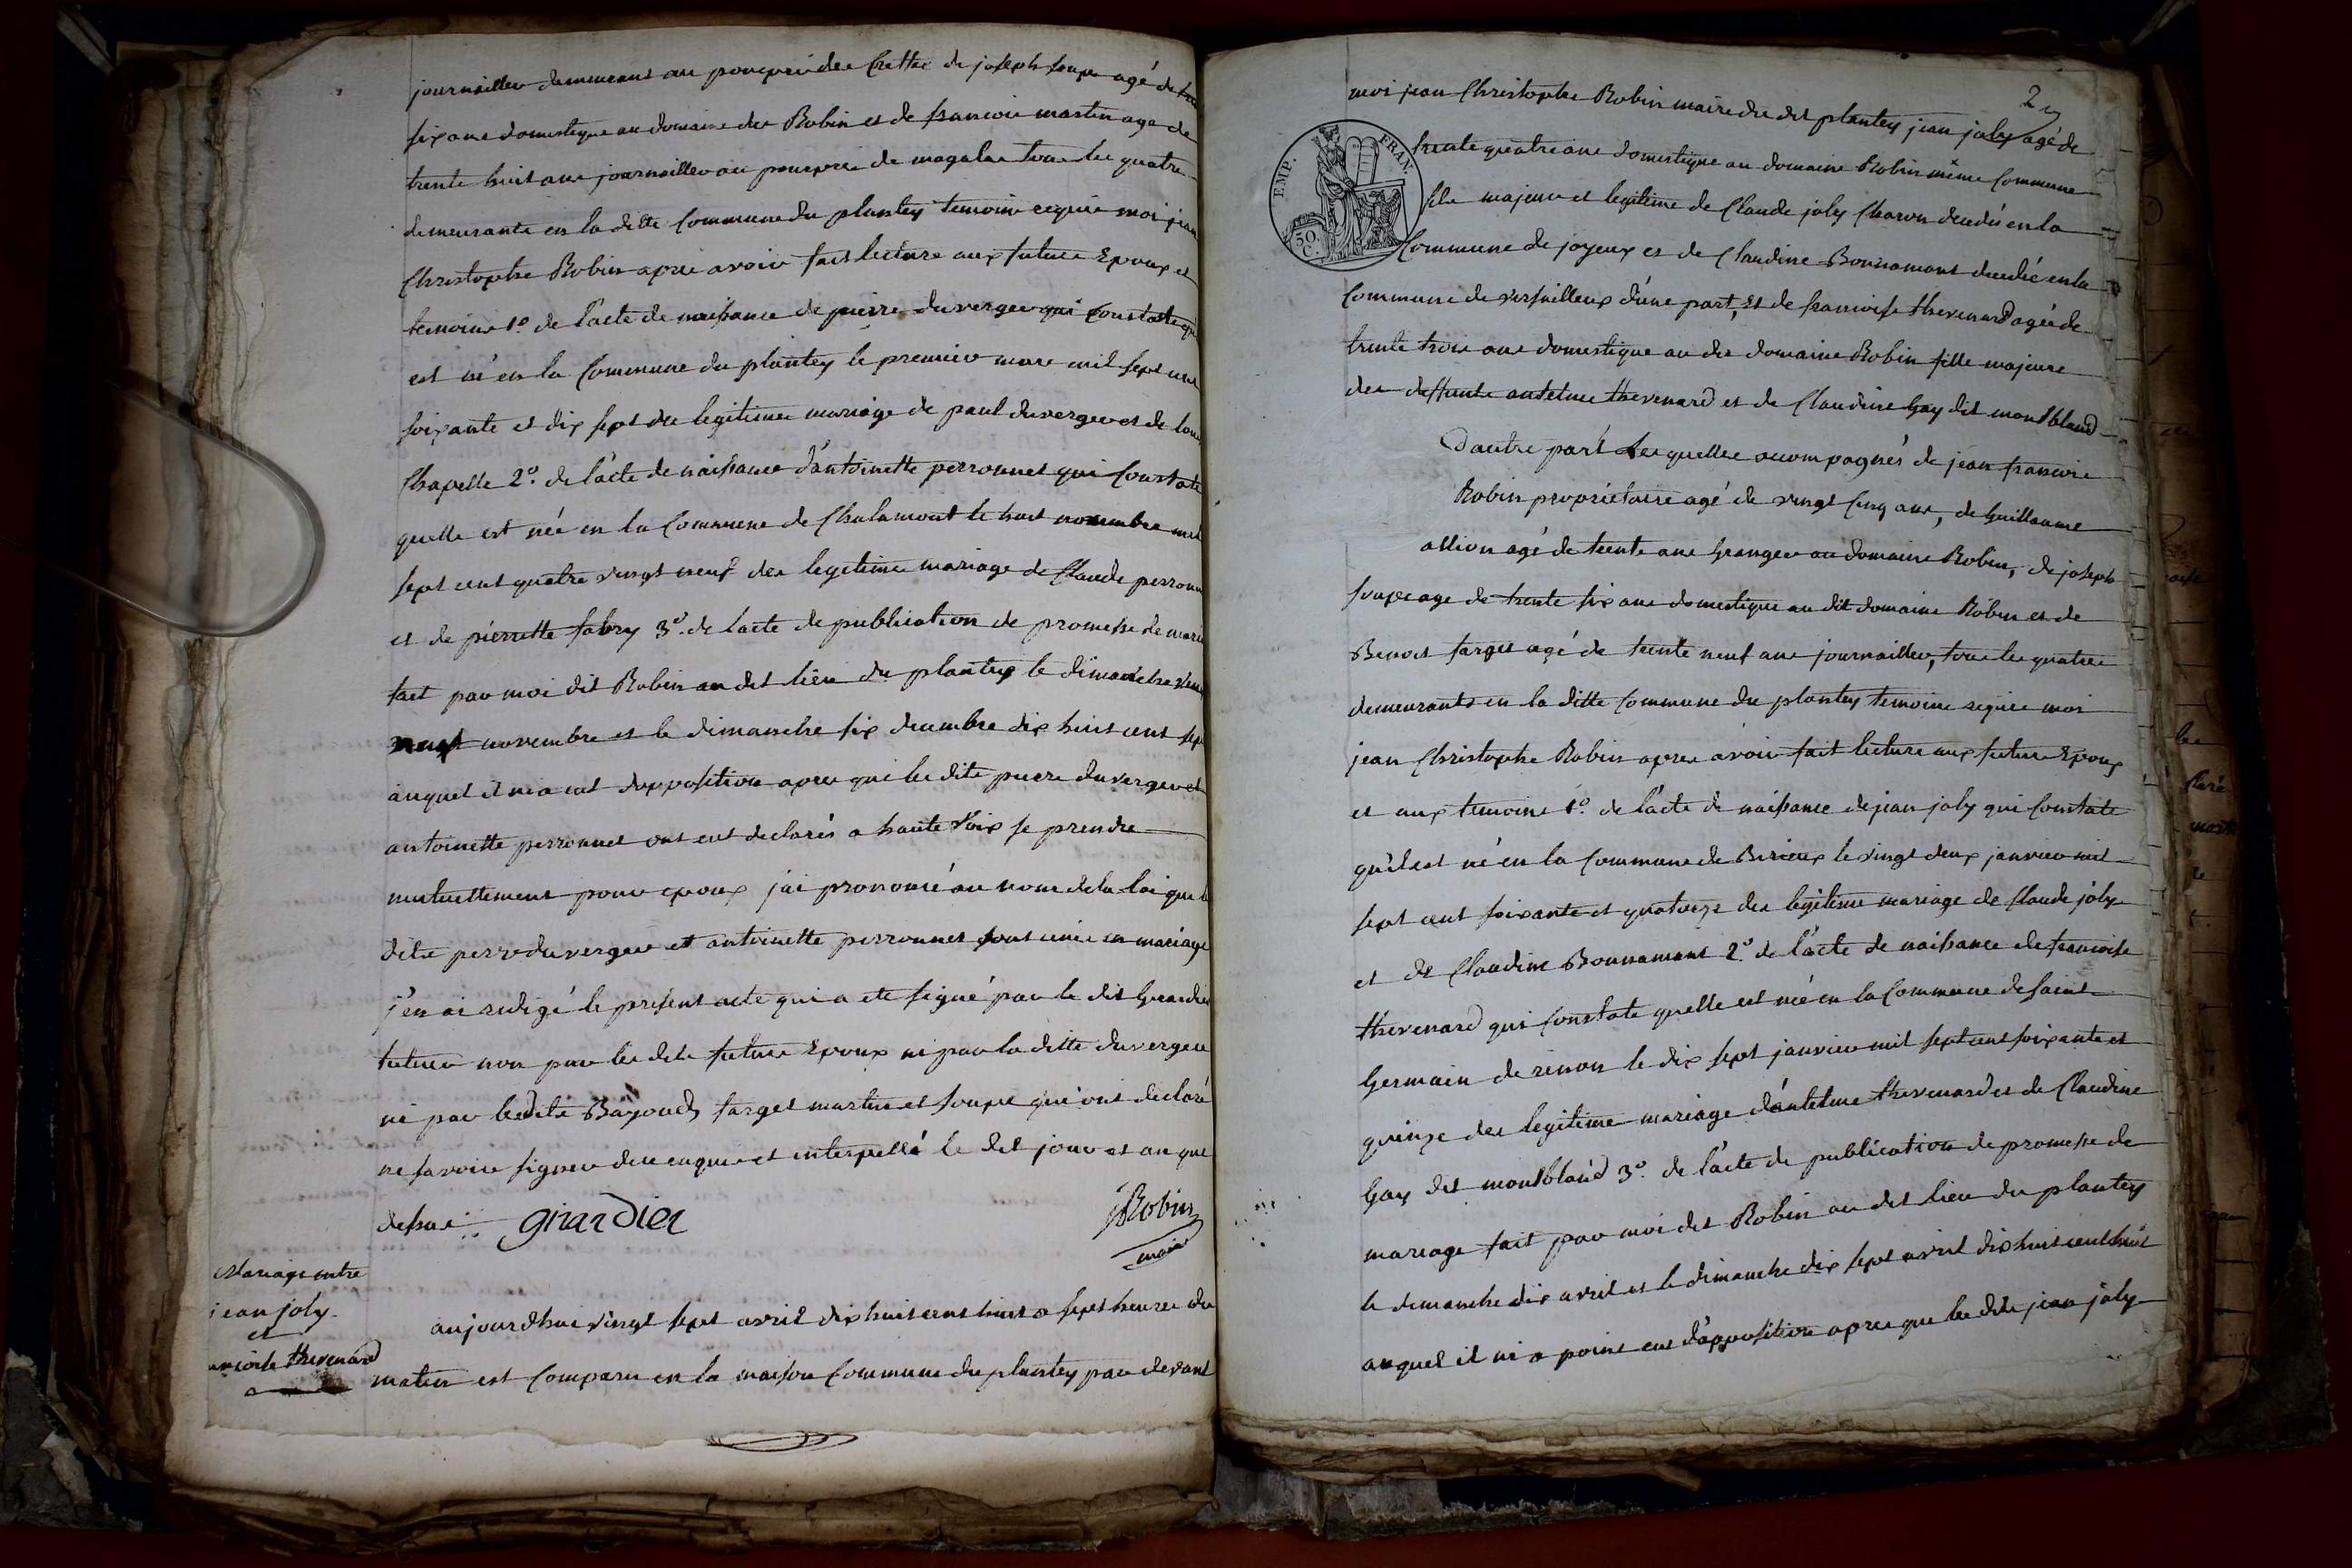 journailler demeurant au pouxprié des Crettes de joseph soupe agé de
six ans domestique au domaine du Robin et de francois martin age de
trente huit ans journaillier au pouxprie de magalas tous les quatre
demeurants en la ditte Commune du plantey temoins requis moi jean
Christophe Robin apres avoir fait lecture aux futurs Epoux et
temoins 1º de l'acte de naissance de pierre duverger qui Constate
est né en la Commune du plantey le premier mars mil sept cent
soixante et dix sept du legitime mariage de paul duverger et de
Chapelle 2º. de l'acte de naissance d'antoinette perronnet qui Constate
quelle est née en la Commune de Chalamont le huit novembre mil
sept cent quatre vingt neuf du legitime mariage de Claude
et de pierrette fabry 3º. de l'acte de publication de promesse de
fait par moi dit Robin au dit lieu du plantey le dimanche
neuf novembre et le dimanche six decembre dix huit cent sept
auquel il ni a eut d'opposition apres que les dits piere duverger et
antoinette perronnet ont eut declarés a haute voix se prendre
mutuellement pour epoux j'ai prononcé au nom de la loi que
dits perre duverger et antoinette perronnet sont unis en mariage
j'en ai redigé le present acte qui a ete signé par le dit Girardier
non par les dits futurs Epoux ni par la ditte duverger
ni par les dits Bajoud farget martin et soupe qui ont declaré
ne savoir signer de ce enquis et interpellé le dit jour et an que
dessus girardier jRobin
maire
Mariage entre
jean joly
et
thevenard
aujourdhui vingt sept avril dix huit cent huit a sept heures du
matin est Comparu en la maison Commune du plantey par devant
2
moi jean Christophe Robin maire du dit plantey jean joly agé de
EMP. FRAN.
50 C.
trente quatre ans domestique au domaine Robin même Commune
fils majeur et legitime de Claude joly Charon decedé en la
Commune de joyeux et de Claudine Bonnamant decedé en la
Commune de versailleux d'une part, Et de francoise thevenard agée de
trente trois ans domestique au dit domaine Robin fille majeure
des deffunts antelme thevenard et de Claudine Gay dit montbland
D'autre part Lesquelles accompagnés de jean francois
Robin propriétaire agé de vingt Cinq ans, de Guillaume
allion agé de trente ans Granger au domaine Robin, de joseph
soupe age de trente six ans domestique au dit domaine Robin et de
Benoit farget agé de trente neuf ans journaillier, tous les quatre
demeurants en la ditte Commune du plantey temoins requis moi
jean Christophe Robin apres avoir fait lecture aux futurs Epoux
et aux temoins 1º. de l'acte de naissance de jean joly qui Constate
qu'il est né en la Commune de Birieux le vingt deux janvier mil
sept cent soixante et quatorze du legitime mariage de Claude joly
et de Claudine Bonnamant 2º. de l'acte de naissance de francoise
thevenard qui Constate quelle est née en la Commune de saint
Germain de renon le dix sept janvier mil sept cent soixante et
quinze du legitime mariage d'antelme thevenard et de Claudine
Gay dit montbland 3º. de l'acte de publication de promesse de
mariage fait par moi dit Robin au dit lieu du plantey
le dimanche dix avril et le dimanche dix sept avril dix huit cent huit
auquel il ni a point eut d'opposition apres que les dits jean joly